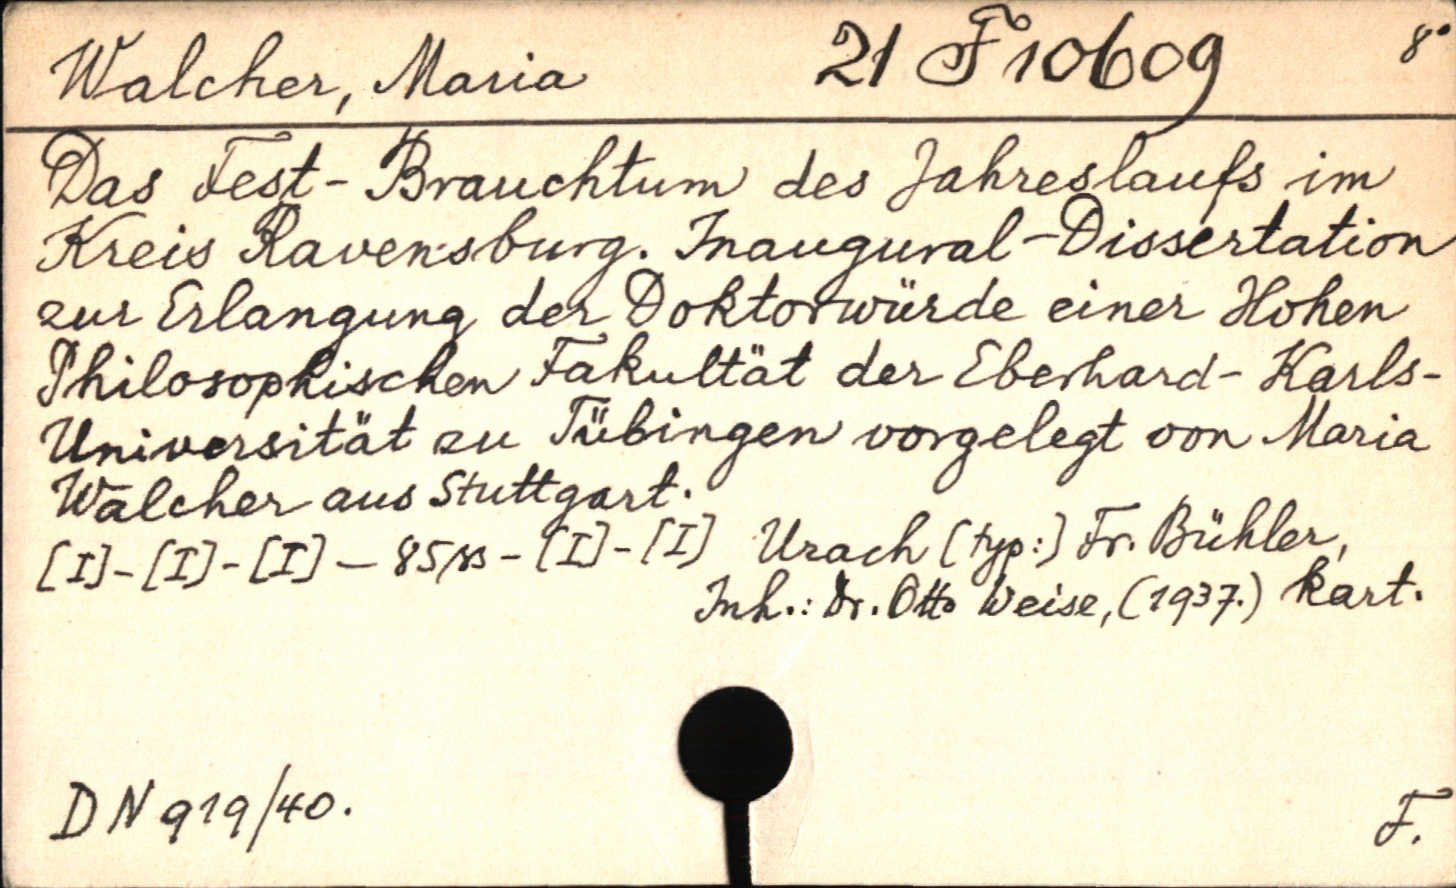 Walcher, Maria 21 F 10609 8°
Das Fest-Brauchtum des Jahreslaufs im
Kreis Ravensburg. Inaugural-Dissertation
zur Erlangung der Doktorwürde einer Hohen
Philosophischen Fakultät der Eberhard-Karls-
Universität zu Tübingen vorgelegt von Maria
Walcher aus Stuttgart.
[I]-[I]-[I] — 85 SS - [I]-[I] Urach (typ:) Fr. Bühler,
Inh.: Dr. Otto Weise, (1937.) kart.
DN 919/40. F.